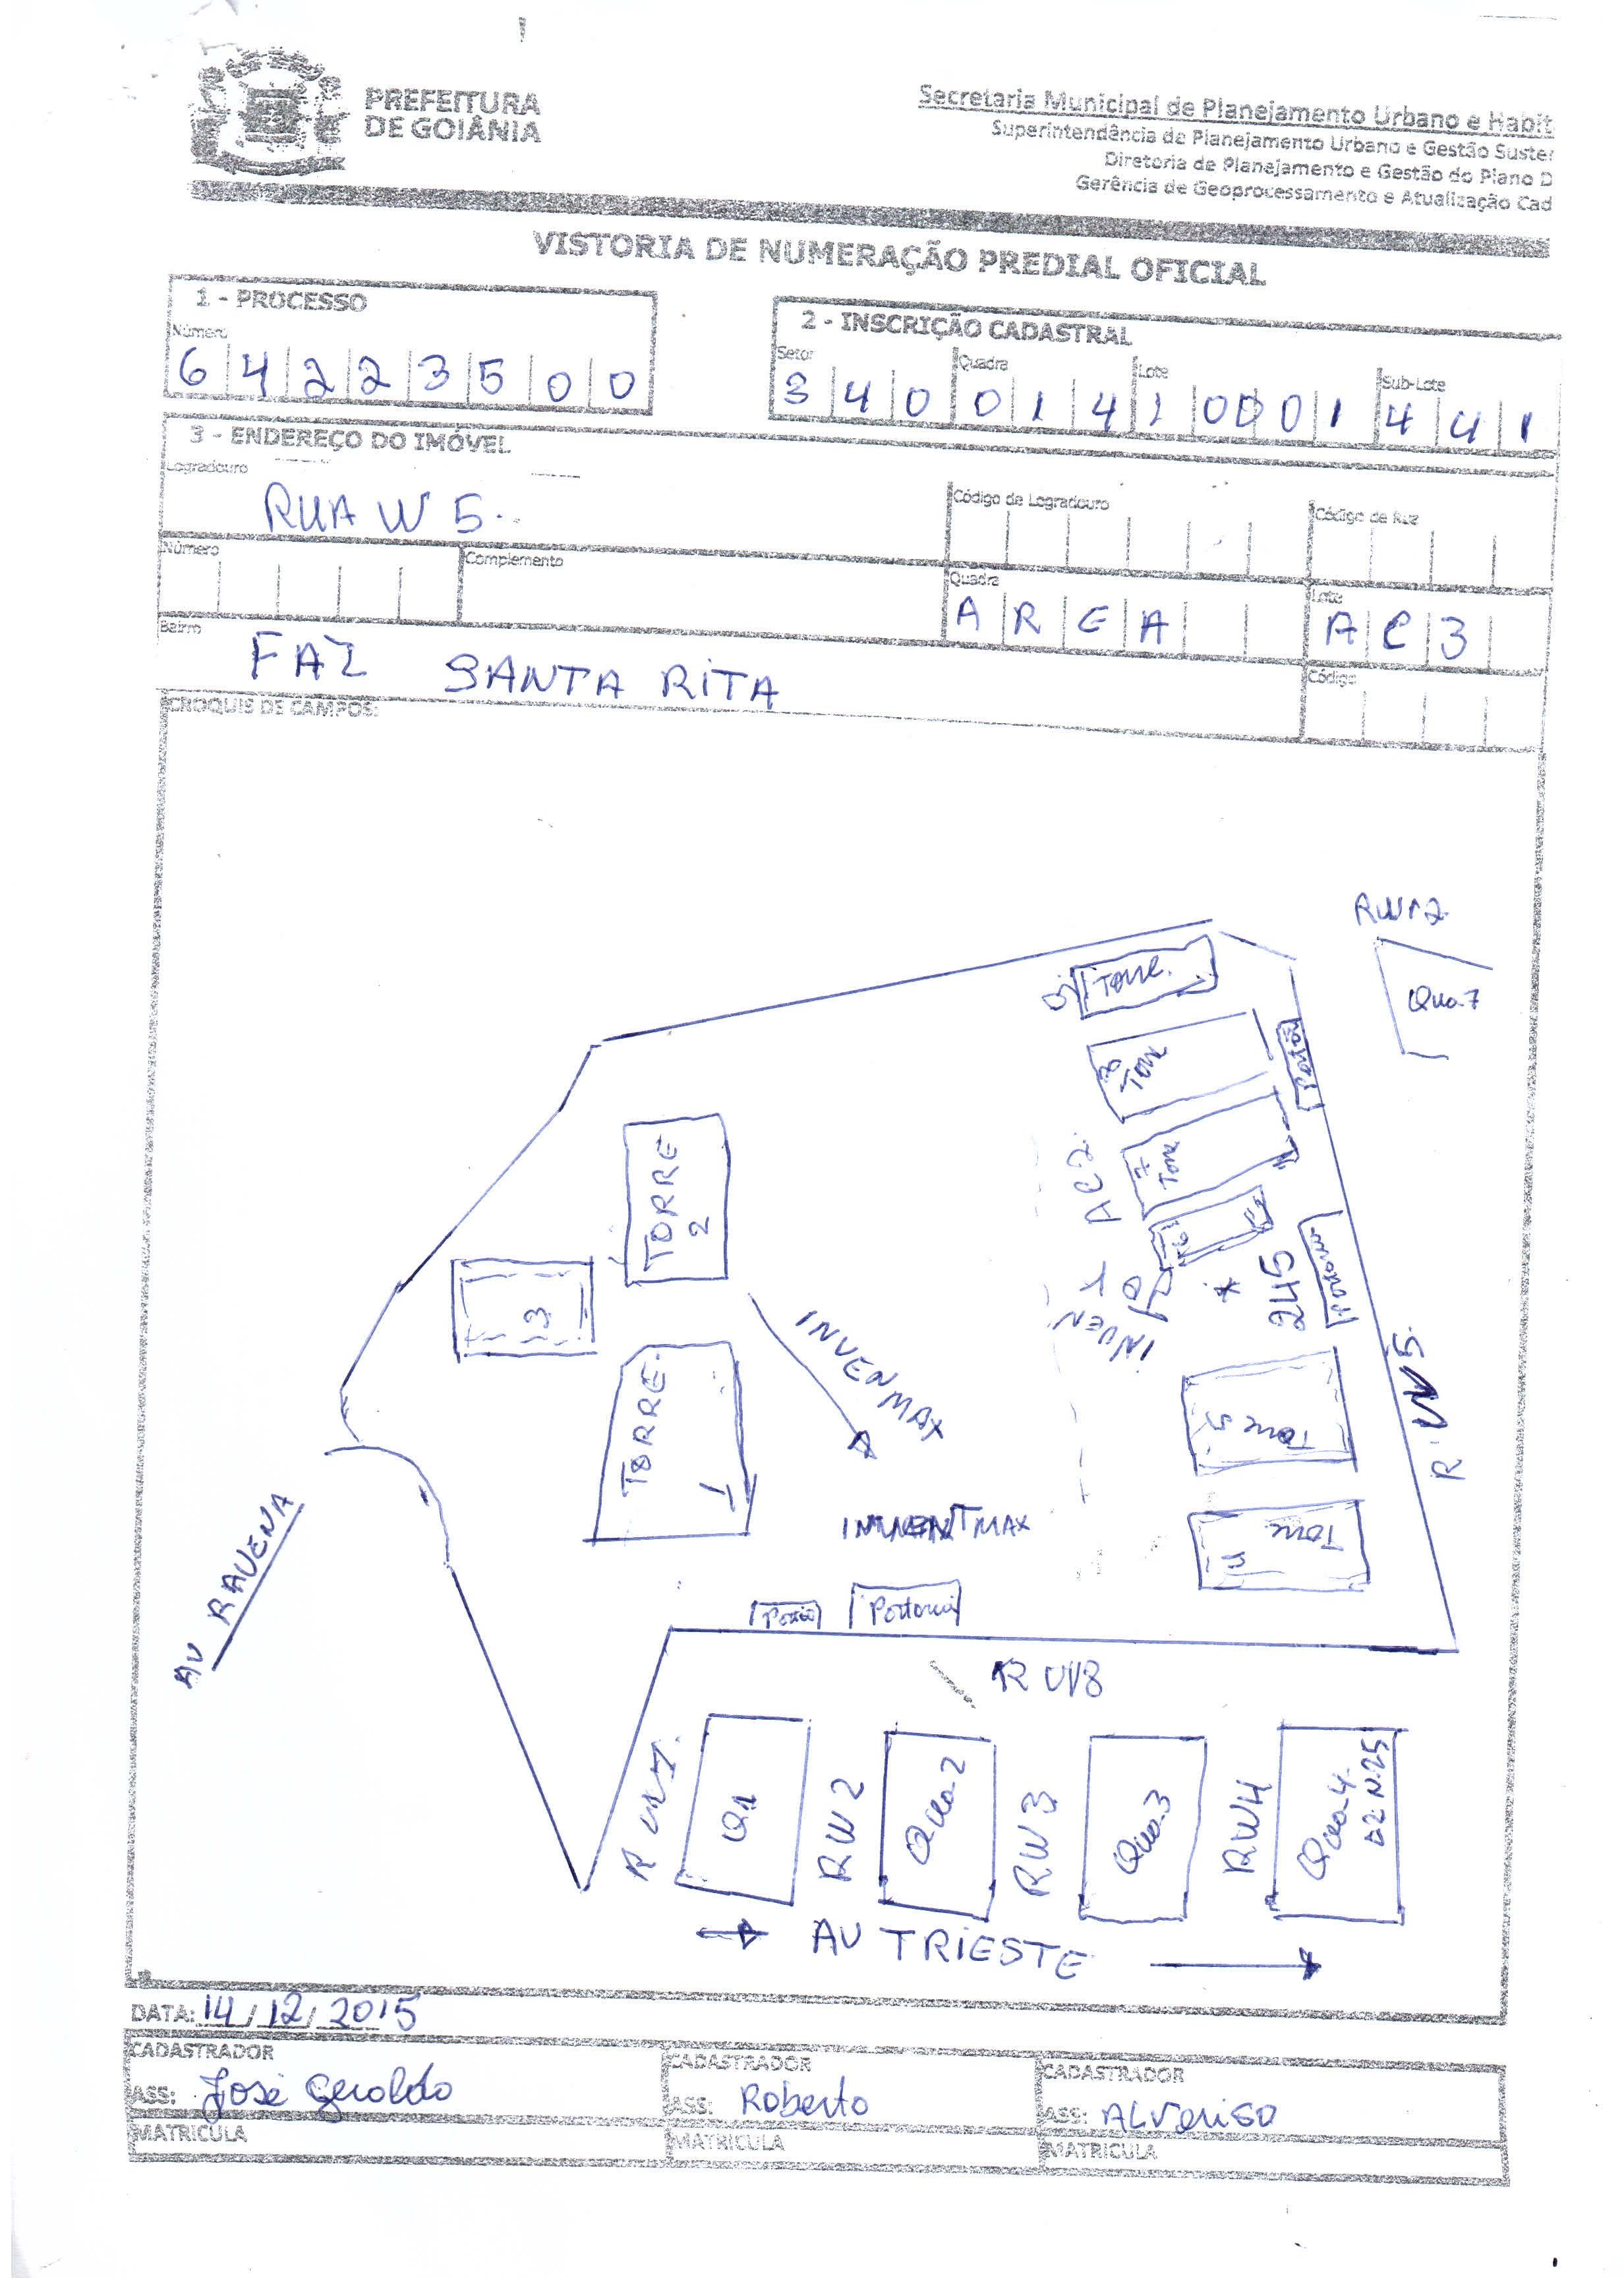 PREFEITURA
DE GOIÂNIA
Secretaria Municipal de Planejamento Urbano e Habit
Superintendência de Planejamento Urbano e Gestão Suster
Diretoria de Planejamento e Gestão do Plano D
Gerência de Geoprocessamento e Atualização Cad
VISTORIA DE NUMERAÇÃO PREDIAL OFICIAL
1 - PROCESSO
Número
6 4 2 2 3 5 0 0
2 - INSCRIÇÃO CADASTRAL
Setor Quadra Lote Sub-Lote
3 4 0 0 1 4 1 0 0 0 1 4 4 1
3 - ENDEREÇO DO IMÓVEL
Logradouro
RUA W 5.
Código de Logradouro
Código de Rua
Número
Complemento
Quadra
A R E A
Lote
A C 3
Bairro
FAZ SANTA RITA
Código
CROQUIS DE CAMPOS:
RW12
Qua.7
Torre.
8 Torre
Portão
7 Torre
AC2.
TORRE
2
3
245
*
INVEN
Portaria
INVENMAX
TORRE.
1
R. W5.
Torre 5
INVENTMAX
Torre
AV RAVENA
Portão
Portaria
R W8
R W1.
Q1
RW2
Qua.2
RW3
Qua.3
RW4
Qua.4
AV TRIESTE
DATA: 14/12/2015
CADASTRADOR
ASS: José Geraldo
MATRICULA
CADASTRADOR
ASS: Roberto
MATRICULA
CADASTRADOR
ASS:
MATRICULA